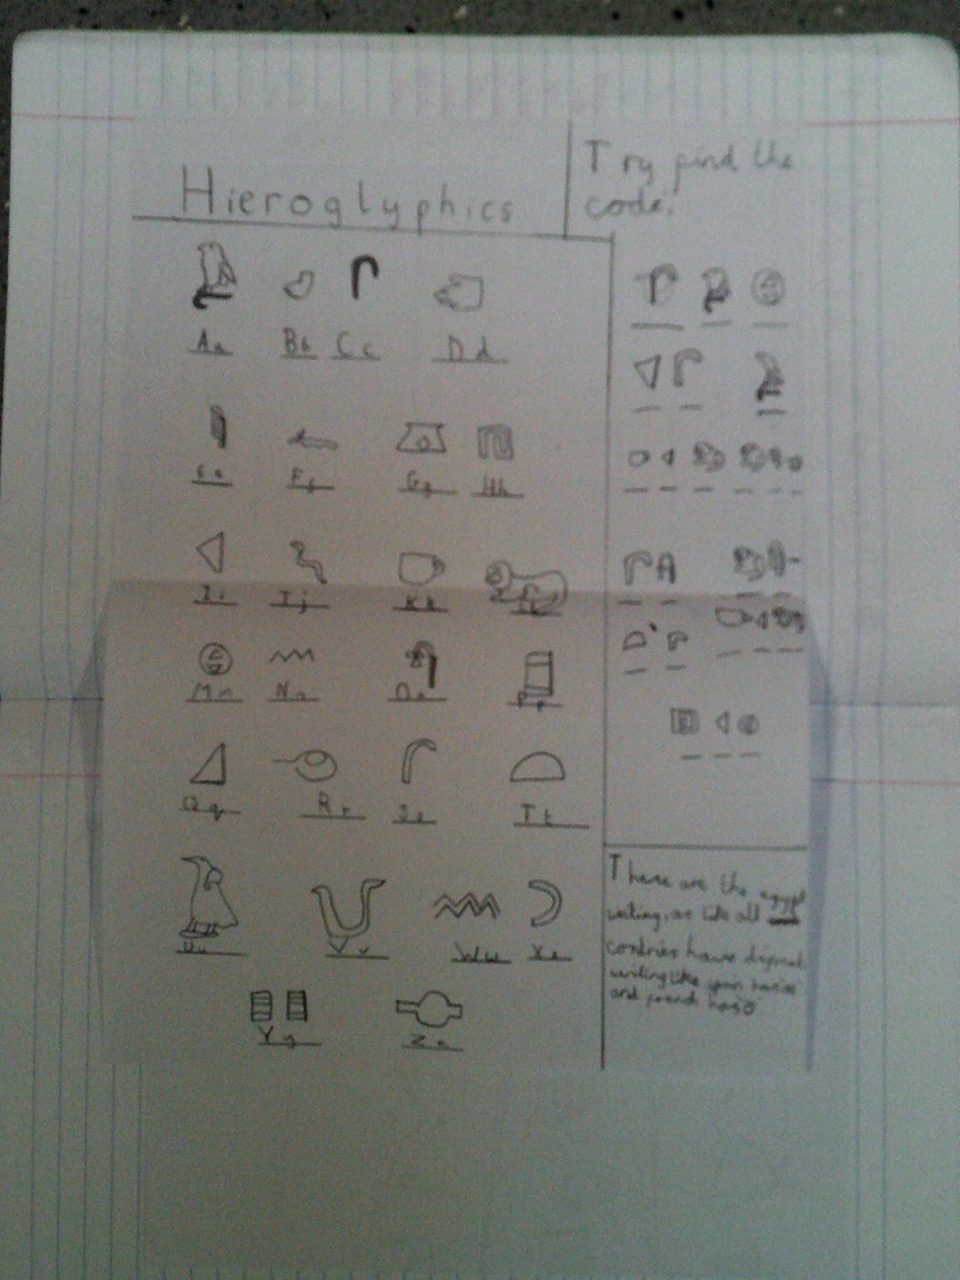 Hieroglyphics
Try find the
code.
Aa Bb Cc Dd
Ee Ff Gg Hh
Ii Jj Kk
Mm Nn Oo Pp
Qq Rr Ss Tt
Uu Vv Ww Xx
Yy Zz
These are the egypt
writing, as like all
contries have
writing like spain
and french has